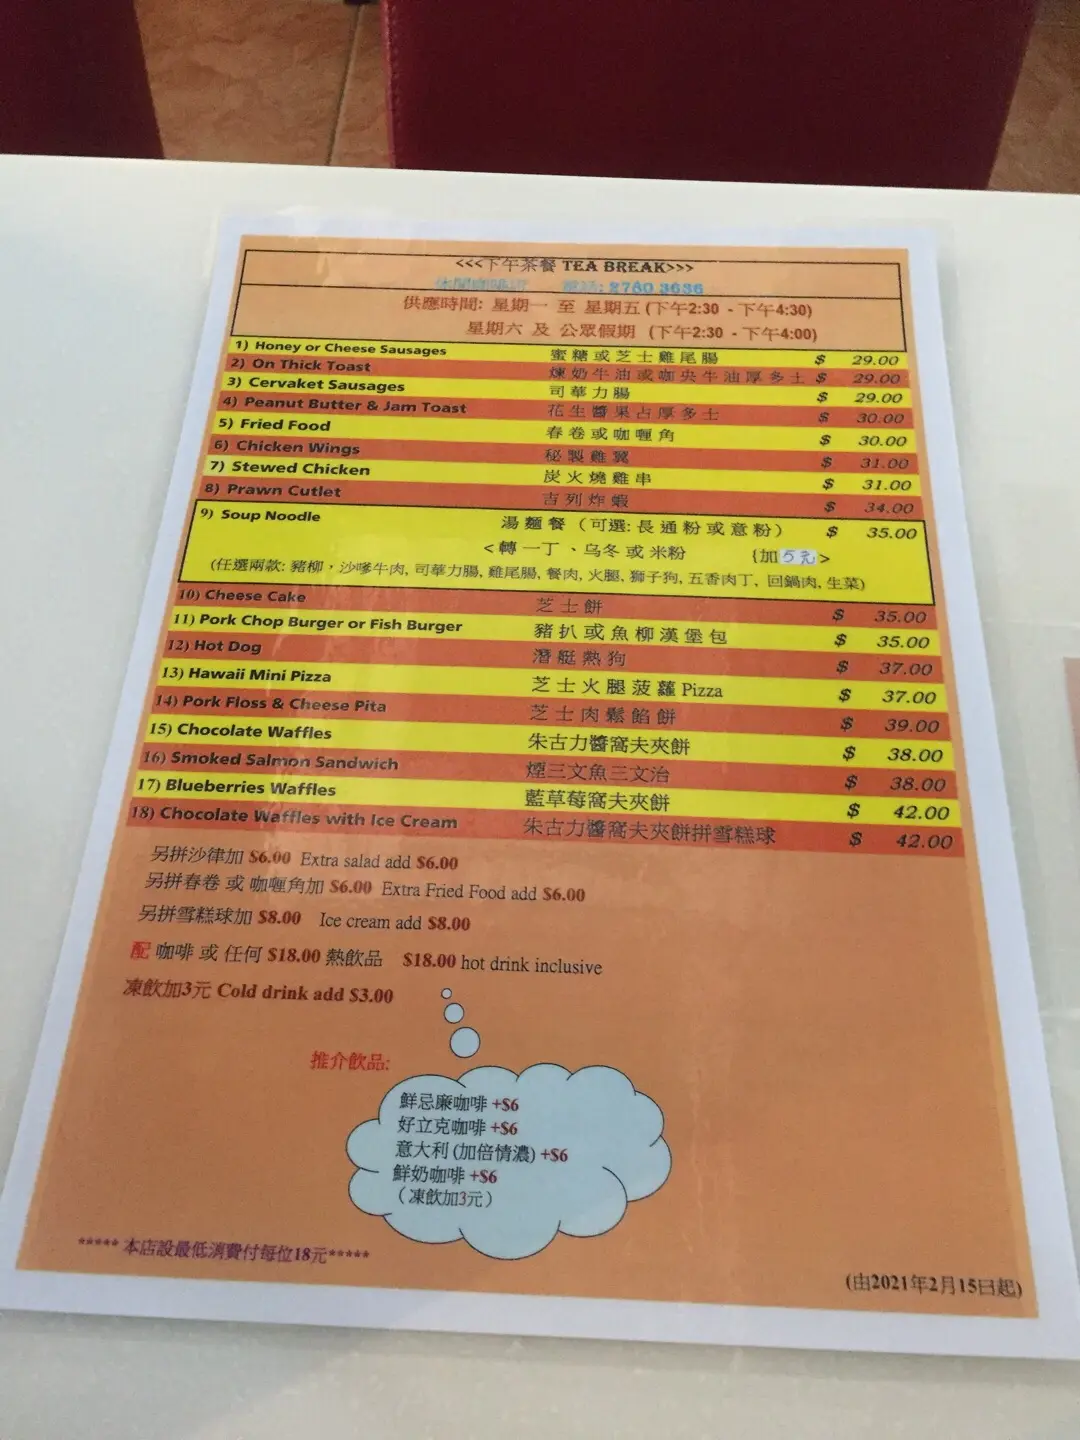 <<<下午茶餐 TEA BREAK>>>
電話: 2780 3636
供應時間: 星期一 至 星期五 (下午2:30 - 下午4:30)
星期六 及 公眾假期 (下午2:30 - 下午4:00)
1) Honey or Cheese Sausages 蜜糖或芝士雞尾腸 $ 29.00
2) On Thick Toast 煉奶牛油或咖央牛油厚多士 $ 29.00
3) Cervaket Sausages 司華力腸 $ 29.00
4) Peanut Butter & Jam Toast 花生醬果占厚多士 $ 30.00
5) Fried Food 春卷或咖喱角 $ 30.00
6) Chicken Wings 秘製雞翼 $ 31.00
7) Stewed Chicken 炭火燒雞串 $ 31.00
8) Prawn Cutlet 吉列炸蝦 $ 34.00
9) Soup Noodle 湯麵餐 (可選: 長通粉或意粉) $ 35.00
<轉一丁、乌冬或米粉 {加5元>
(任選兩款: 豬柳，沙嗲牛肉, 司華力腸, 雞尾腸, 餐肉, 火腿, 獅子狗, 五香肉丁, 回鍋肉, 生菜)
10) Cheese Cake 芝士餅 $ 35.00
11) Pork Chop Burger or Fish Burger 豬扒或魚柳漢堡包 $ 35.00
12) Hot Dog 潛艇熱狗 $ 37.00
13) Hawaii Mini Pizza 芝士火腿菠蘿Pizza $ 37.00
14) Pork Floss & Cheese Pita 芝士肉鬆餡餅 $ 39.00
15) Chocolate Waffles 朱古力醬窩夫夾餅 $ 38.00
16) Smoked Salmon Sandwich 煙三文魚三文治 $ 38.00
17) Blueberries Waffles 藍草莓窩夫夾餅 $ 42.00
18) Chocolate Waffles with Ice Cream 朱古力醬窩夫夾餅拼雪糕球 $ 42.00
另拼沙律加 $6.00 Extra salad add $6.00
另拼春卷 或 咖喱角加 $6.00 Extra Fried Food add $6.00
另拼雪糕球加 $8.00 Ice cream add $8.00
配 咖啡 或 任何 $18.00 熱飲品 $18.00 hot drink inclusive
凍飲加3元 Cold drink add $3.00
推介飲品:
鮮忌廉咖啡 +$6
好立克咖啡 +$6
意大利 (加倍情濃) +$6
鮮奶咖啡 +$6
（凍飲加3元）
***** 本店設最低消費付每位18元*****
(由2021年2月15日起)